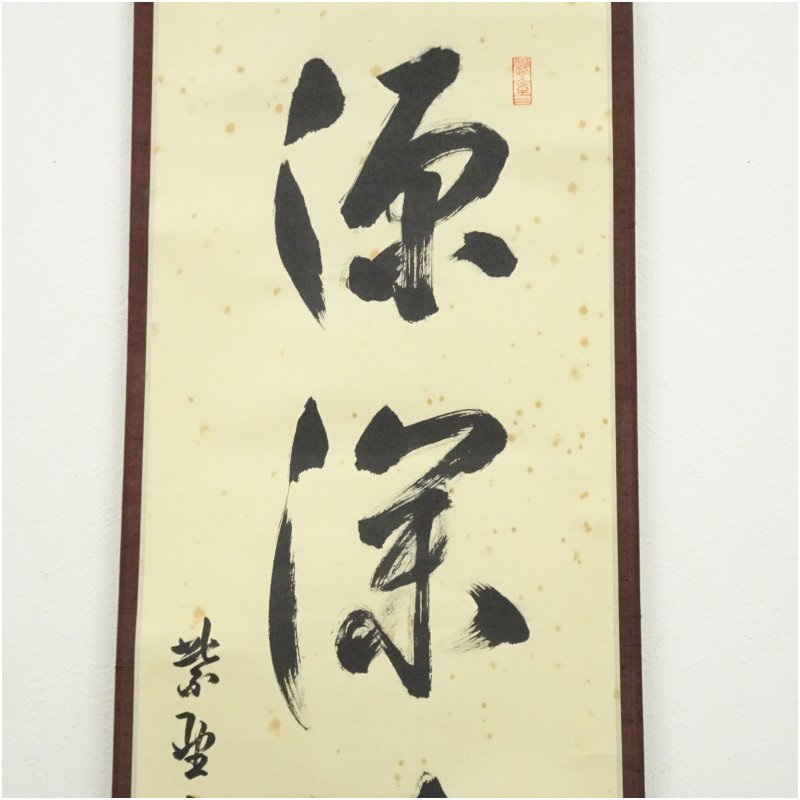 源深
紫野